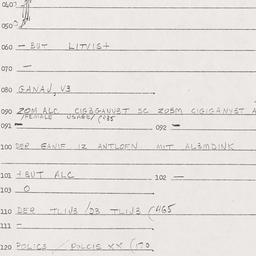 040
050
060 — BUT LITVIS+
070 —
080 GANAV, V3
090 ZOM ALC CIG3GANVBT SC ZOBM CIGIGANYBT
/FEMALE USAGE/ (135
091 — 092 —
100 DER GANIF IZ ANTLOFN MIT ALBMDINK
101 +BUT ALC 102 —
103 O
110 DER TLIV3 /D3 TLIV3 (465
111 —
120 POLIC3 / POLCIS XX (170